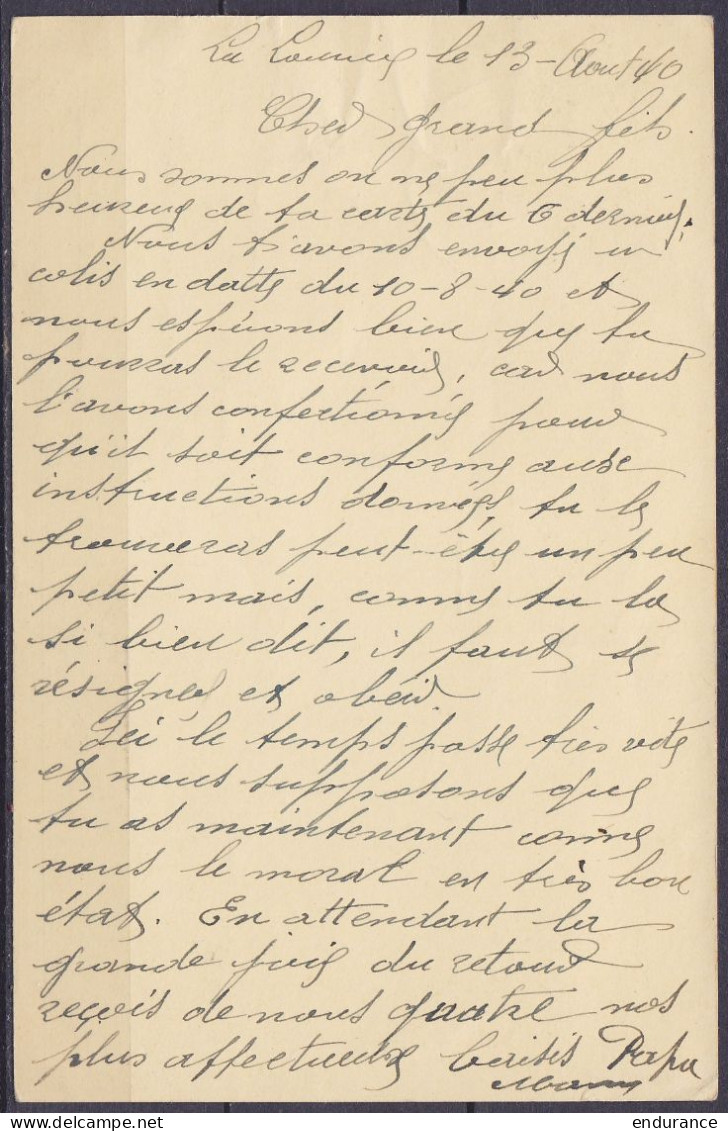 La Louvière le 13-Aout 40
Cher grand fils.
Nous sommes on ne peu plus
heureux de ta carte du 6 dernier.
Nous t'avons envoyé un
colis en datte du 10-8-40 et
nous espérons bien que tu
pourras le recevoir, car nous
l'avons confectionné pour
qu'il soit conforme aux
instructions données, tu le
trouveras peut-être un peu
petit mais, comme tu l'as
si bien dit, il faut se
résigner et obéir.
Ici le temps passe très vite
et nous supposons que
tu as maintenant comme
nous le moral en très bon
état. En attendant la
grande joie du retour
reçois de nous quatre nos
plus affectueux baisés Papa
Maman
delcampe.net
endurance